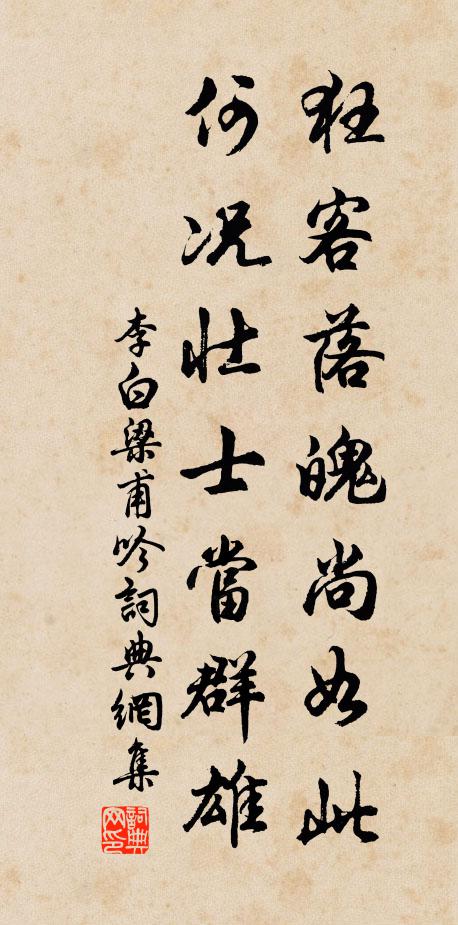 狂客落魄尚如此
何况壮士當群雄
李白梁甫吟詞典網集
詞典網印